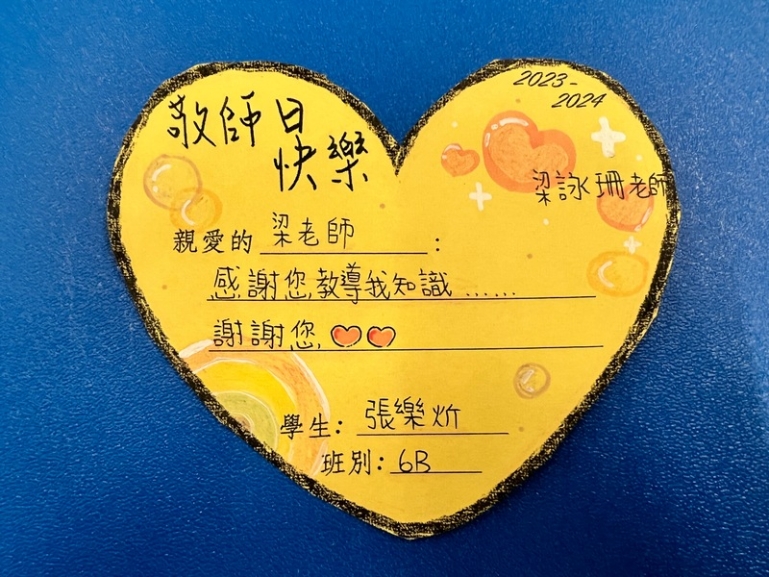 敬師日
快樂
2023-
2024
梁詠珊老師
親愛的 梁老師 :
感謝您教導我知識 ......
謝謝您,
學生: 張樂炘
班別: 6B